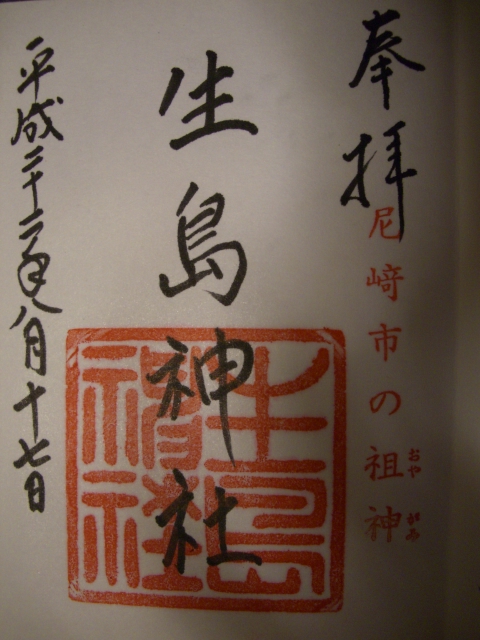 奉拝
尼崎市の祖神
おや がみ
生島神社
生島神社
平成二十二年八月十七日